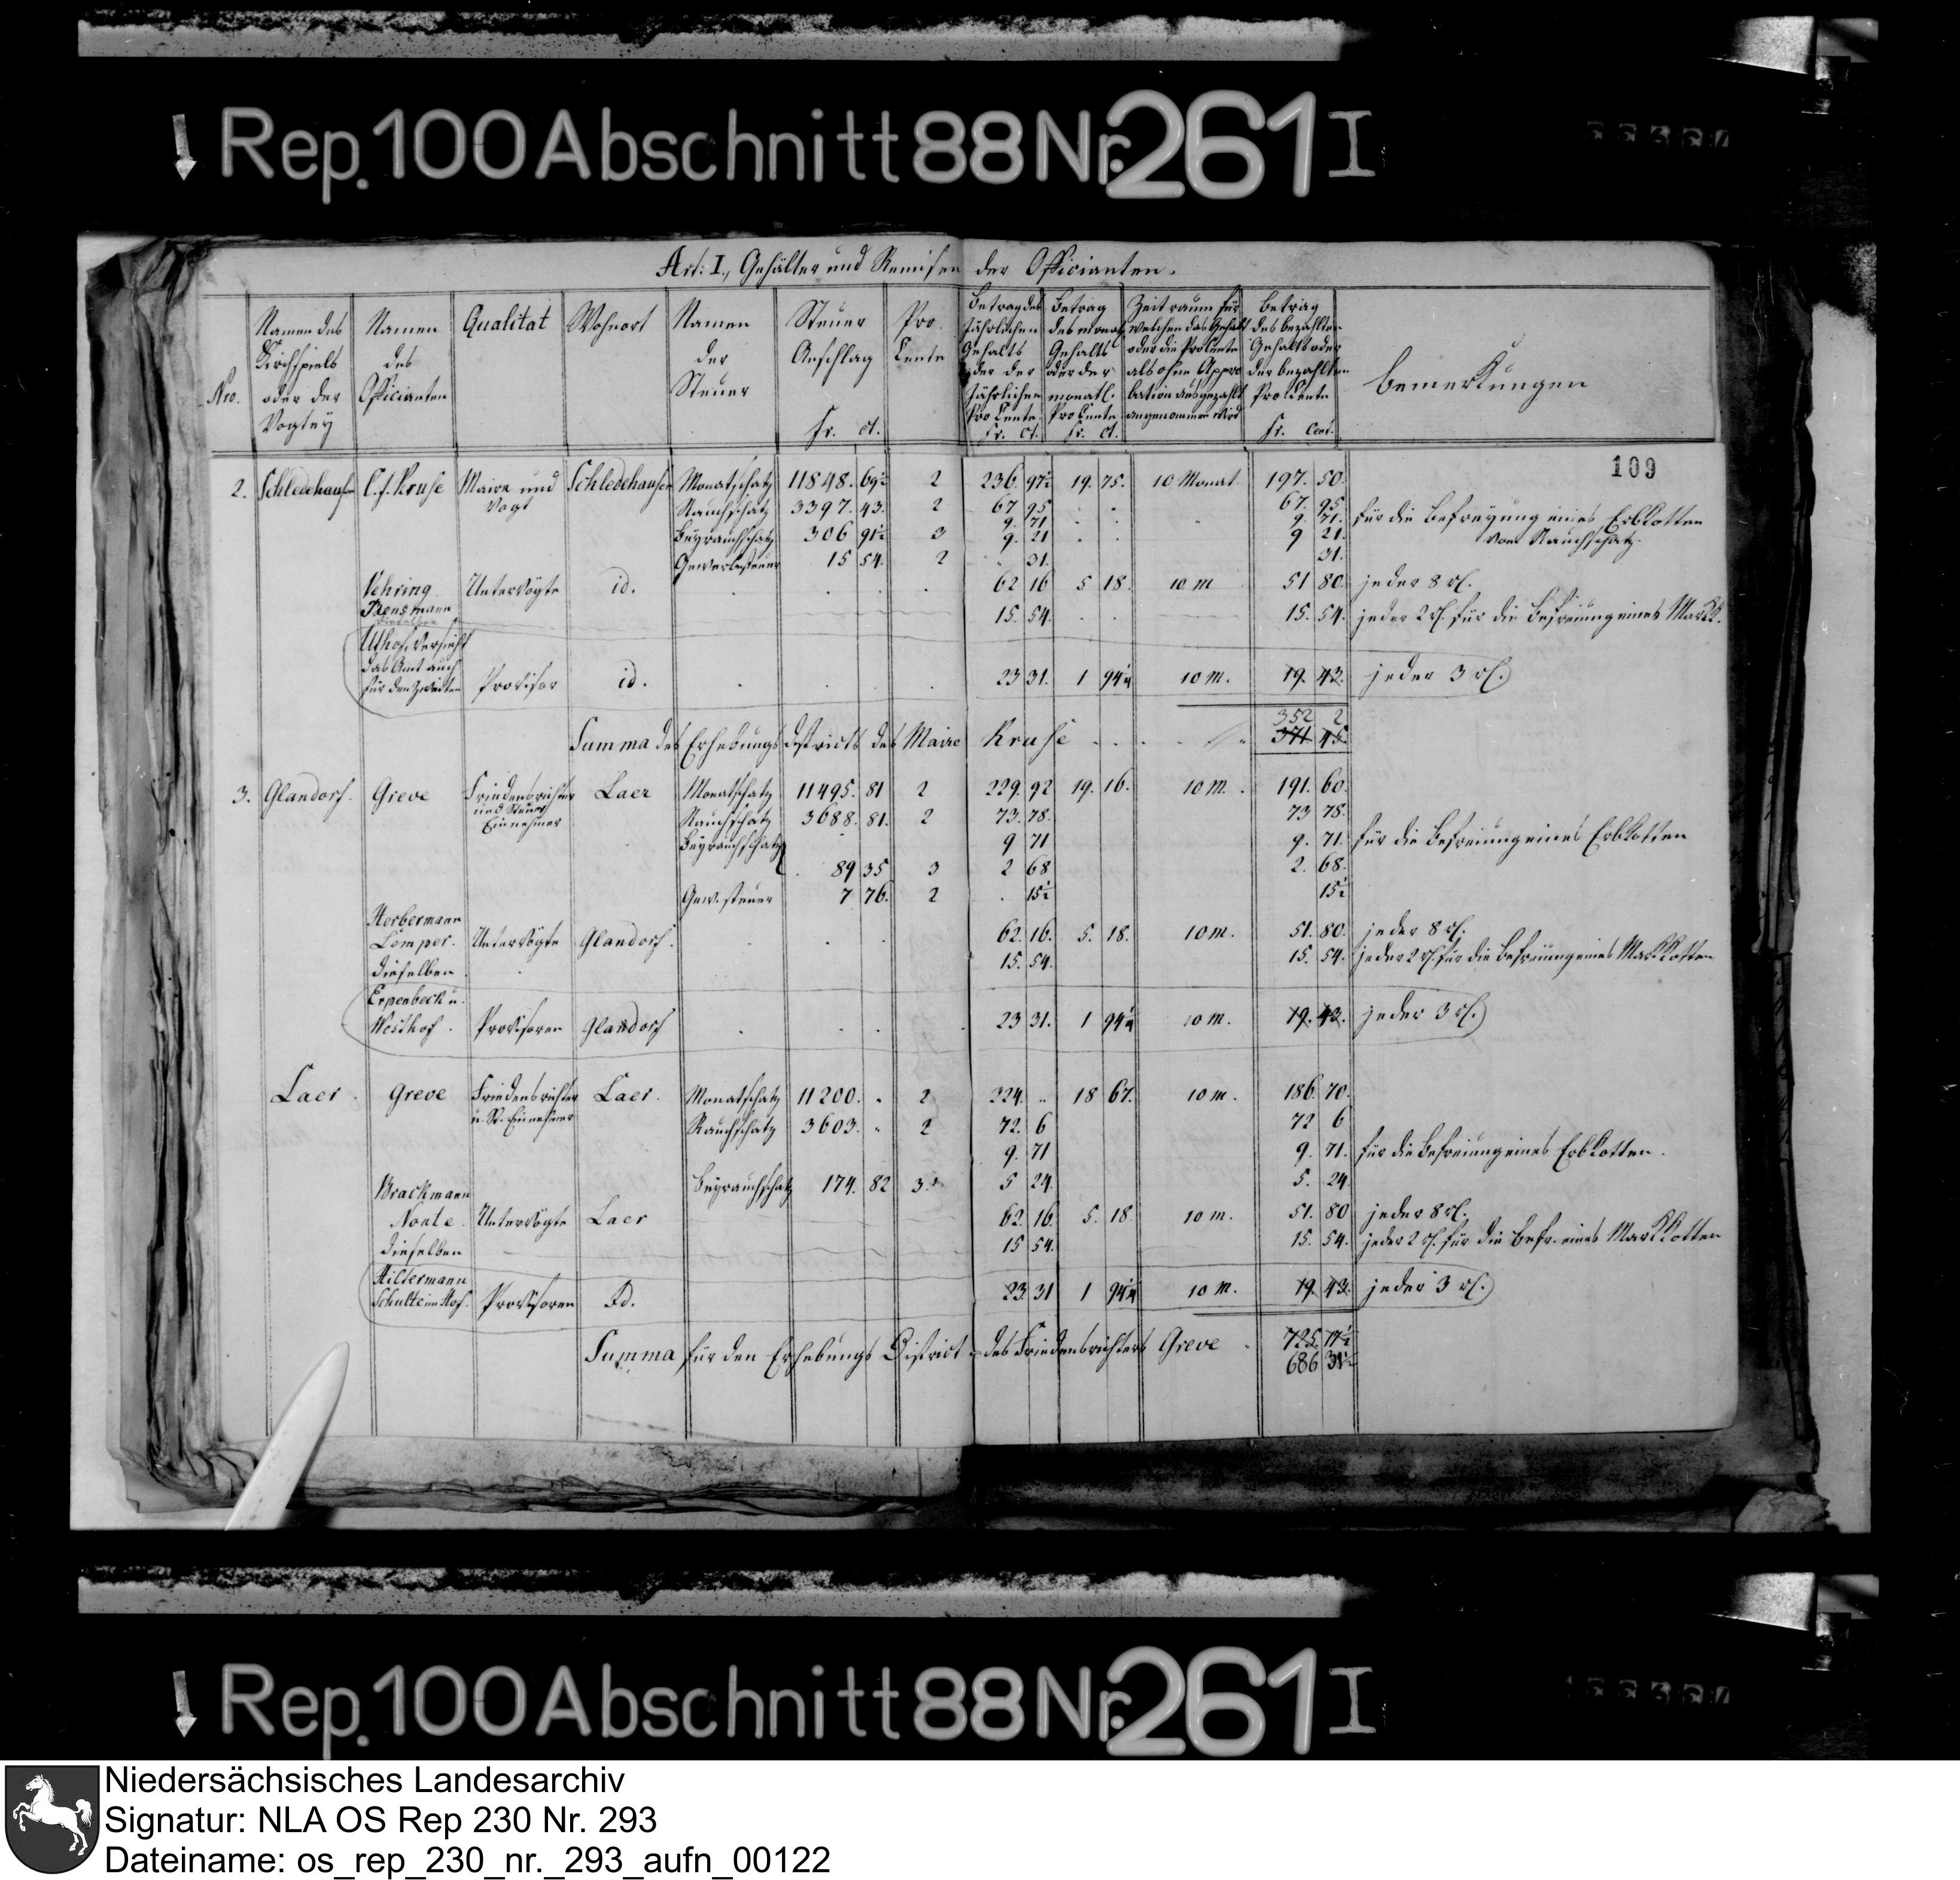 Rep. 100 Abschnitt 88 Nr. 261 I
Art: I., Gehälter und Remisen der Officianten.
Nro. | Namen des Kirchspiels oder der Vogtey | Namen des Officianten | Qualitat | Wohnort | Namen der Steuer | Steuer Anschlag fr. ct. | Pro Cente | Betrag des jährlichen Gehalts oder der jährlichen Pro Cente fr. ct. | Betrag des monatl. Gehalts oder der monatl. Pro Cente fr. ct. | Zeitraum für welchen das Gehalt oder die Pro Cente als ohne Approbation ausgezahlt angenommen wird | Betrag des bezahlten Gehalts oder der bezahlten Pro Cente fr. Cent. | Bemerkungen
109
2. Schledehausen C. f. Kruse Maire und Vogt Schledehausen Monatschatz 11848. 69½ 2 236. 97½ 19. 75. 10 Monat 197. 50.
Rauchschatz 3397. 43. 2 67 95 67. 95.
9. 71 9. 71. für die Befreyung eines Erbkotten vom Rauchschatz.
Beyrauchschatz 306 91½ 3 9. 21 9 21.
Gewerbesteuer 15 54. 2 31. 31.
Vehring Untervögte id. 62 16 5 18. 10 m 51 80. jeder 8 rl.
dieselben 15. 54. 15. 54. jeder 2 rl. für die Befreiung eines Markk.
Uthof, versieht
das Amt auch
für den Zweiten Provisor id. 23 31. 1 94¼ 10 m. 19. 43. jeder 3 rl.
352 2
Summa des Erhebungs Districts des Maire Kruse 371 45
3. Glandorf. Greve Friedensrichter und Steuer Einnehmer Laer Monatschatz 11495. 81 2 229. 92 19. 16. 10 m. 191. 60.
Rauchschatz 3688. 81. 2 73. 78. 73 78.
Beyrauchschatz 9 71 9. 71. für die Befreiung eines Erbkotten
89 35 3 2 68 2. 68.
Gew. steuer 7 76. 2 15½ 15½
Herbermann
Lomper. Untervögte Glandorf. 62. 16. 5. 18. 10 m. 51. 80. jeder 8 rl.
dieselben 15. 54. 15. 54. jeder 2 rl. für die Befreiung eines Markkotten
Erpenbeck u.
Westhof. Provisoren Glandorf 23 31. 1 94¼ 10 m. 19. 43. jeder 3 rl.
Laer. Greve Friedensrichter u. St. Einnehmer Laer. Monatschatz 11200. " 2 224. " 18 67. 10 m. 186. 70.
Rauchschatz 3603. " 2 72. 6 72 6
9. 71 9. 71. für die Befreiung eines Erbkotten.
Beyrauchschatz 174. 82 3. 5 24. 5. 24.
Brackmann
Nonte. Untervögte Laer 62. 16. 5. 18 10 m. 51. 80 jeder 8 rl.
dieselben 15 54. 15. 54. jeder 2 rl. für die Befr. eines Markkotten
Hiltermann
Schulte im Hof. Provisoren Id. 23. 31 1 94¼ 10 m. 19. 43. jeder 3 rl.
Summa für den Erhebungs District des Friedensrichters Greve 725. 17½
686 31½
Rep. 100 Abschnitt 88 Nr. 261 I
Niedersächsisches Landesarchiv
Signatur: NLA OS Rep 230 Nr. 293
Dateiname: os_rep_230_nr._293_aufn_00122